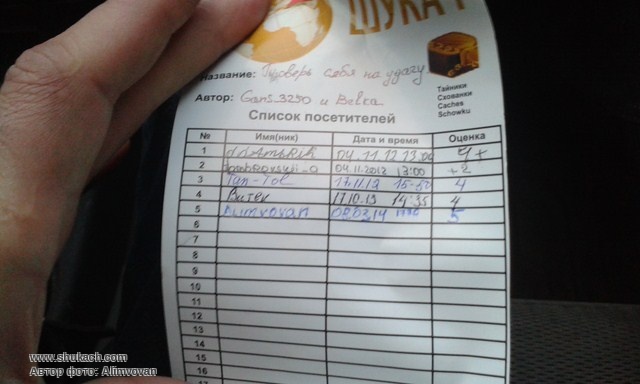 ШУКАЧ
Название: Проверь себя на удачу.
Автор: Gans_3250 и Belka
Тайники
Схованки
Caches
Schowku
Список посетителей
№ Имя(ник) Дата и время Оценка
1 04.11.12 13:00 4+
2 04.11.2012 13:00
3 Tan-Tol 17.11.12 4
4 Витек 17.10.13 14:35 4
5 Alimvovan 08.02.14 5
6
7
8
9
10
11
12
13
14
15
16
17
www.shukach.com
Автор фото: Alimvovan